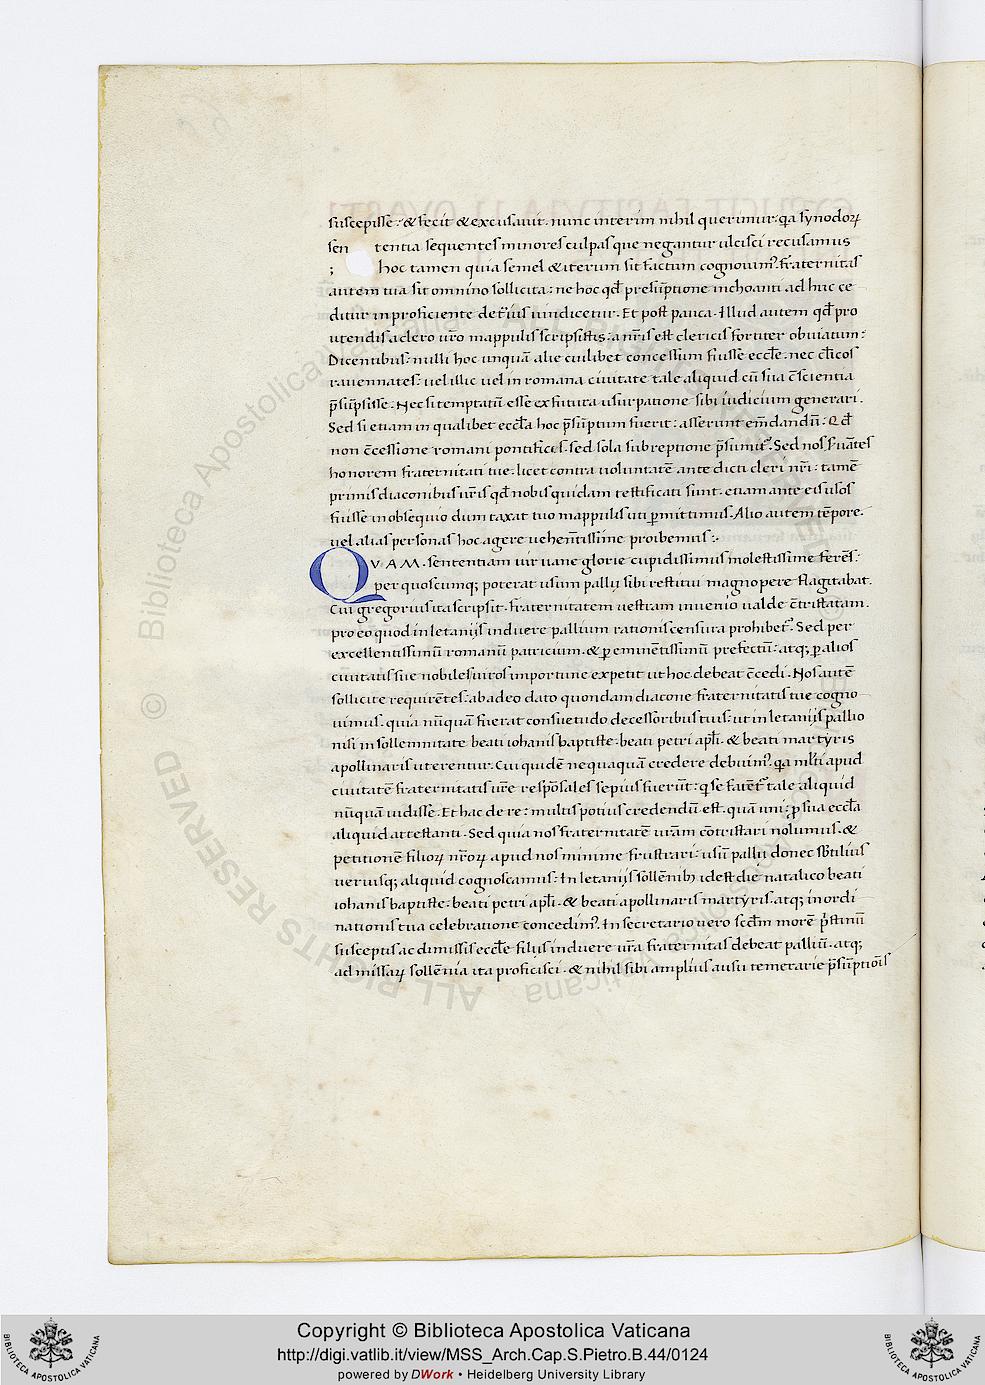 suscepisse: & fecit & excusauit. nunc interim nihil querimur: q̃a synodoꝝ
sen tentia sequentes minores culpas que negantur ulcisci recusamus
; hoc tamen quia semel & iterum sit factum cognouim⁹. fraternitas
autem tua sit omnino sollicita: ne hoc qđ presũptione inchoanti ad huc ce
ditur in proficiente
uindicetur. Et post pauca. Illud autem qđ pro
utendis a clero ur̃o mappulis scripsistis: a nr̃is est clericis fortiter obuiatum:
Dicentibus: nulli hoc unquã alie cuilibet concessum fuisse eccl̃e. nec cl̃icos
rauennates: uel illic uel in romana ciuitate tale aliquid cũ sua c̃scientia
p̃sũpsisse. Nec si temptatũ esse ex furtiua usurpatione sibi iudicium generari.
Sed si etiam in qualibet eccl̃a hoc p̃sũptum fuerit: asserunt em̃dandũ: Qđ
non c̃cessione romani pontifices. sed sola subreptione p̃sumit⁹. Sed nos s̃uãtes
honorem fraternitati tue. licet contra uoluntatẽ ante dicti cleri nr̃i: tamẽ
primis diaconibus ur̃is qđ nobis quidam testificati sunt. etiam ante eis usos
fuisse in obsequio dum taxat tuo mappulis uti ꝑmittimus. Alio autem tẽpore.
uel alias personas hoc agere uehem̃tissime proibemus:.
QVAM. sententiam uir uane glorie cupidissimus molestissime ferẽs:
per quoscumq; poterat usum pallij sibi restitui magnopere flagitabat.
Cui gregorius ita scripsit. fraternitatem uestram inuenio ualde c̃tristatam.
pro eo quod in letanijs induere pallium rationis censura prohibet⁹. Sed per
excellentissimũ romanũ patricium. & ꝑ eminẽtissimũ prefectũ: atq; ꝑ alios
ciuitatis sue nobiles uiros importune expetit ut hoc debeat c̃cedi. Nos autẽ
sollicite requirẽtes: ab adeo dato quondam diacone fraternitatis tue cogno
uimus. quia nũquã fuerat consuetudo decessoribus tuis: ut in letanijs pallio
nisi in sollemnitate beati iohanis baptiste: beati petri apl̃i. & beati martyris
apollinaris uterentur. Cui quidẽ nequaquã credere debuim⁹. q̃a ml̃ti apud
ciuitatẽ fraternitatis ur̃e resp̃osales sepius fuerũt: q̃ se fatẽt⁹ tale aliquid
nũquã uidisse. Et hac de re: multis potius credendũ est. quã uni: ꝓ sua eccl̃a
aliquid attestanti. Sed quia nos fraternitatẽ ur̃am cõtristari nolumus. &
petitionẽ filioꝝ nr̃oꝝ apud nos minime frustrari: usũ pallii donec sb̃tilius
ueriusq; aliquid cognoscamus: In letanijs sollẽnib; idest die natalico beati
iohanis baptiste: beati petri apl̃i. & beati apollinaris martyris. atq; in ordi
nationis tua celebratione concedim⁹. In secretario uero scd̃m morẽ p̃stinũ
susceptis ac dimissis eccl̃e filijs induere ur̃a fraternitas debeat palliũ. atq;
ad missaꝝ sollẽnia ita proficisci. & nihil sibi amplius ausu temerarie p̃sũptiõis
© Biblioteca Apostolica Vaticana
ALL RIGHTS RESERVED
Copyright © Biblioteca Apostolica Vaticana
http://digi.vatlib.it/view/MSS_Arch.Cap.S.Pietro.B.44/0124
powered by DWork • Heidelberg University Library
BIBLIOTECA APOSTOLICA VATICANA
BIBLIOTECA APOSTOLICA VATICANA